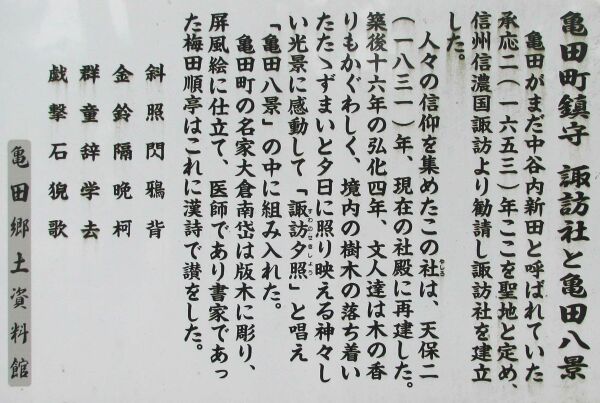 亀田町鎮守 諏訪社と亀田八景
亀田がまだ中谷内新田と呼ばれていた
承応二(一六五三)年ここを聖地と定め、
信州信濃国諏訪より勧請し諏訪社を建立
した。
人々の信仰を集めたこの社は、天保二
やしろ
(一八三一)年、現在の社殿に再建した。
築後十六年の弘化四年、文人達は木の香
りもかぐわしく、境内の樹木の落ち着い
たたゝずまいと夕日に照り映える神々し
い光景に感動して「諏訪夕照」と唱え
すわのせきしょう
「亀田八景」の中に組み入れた。
亀田町の名家大倉南岱は版木に彫り、
屏風絵に仕立て、医師であり書家であっ
た梅田順亭はこれに漢詩で讃をした。
斜照閃鴉背
金鈴隔晩柯
群童辞学去
戯撃石猊歌
亀田郷土資料館